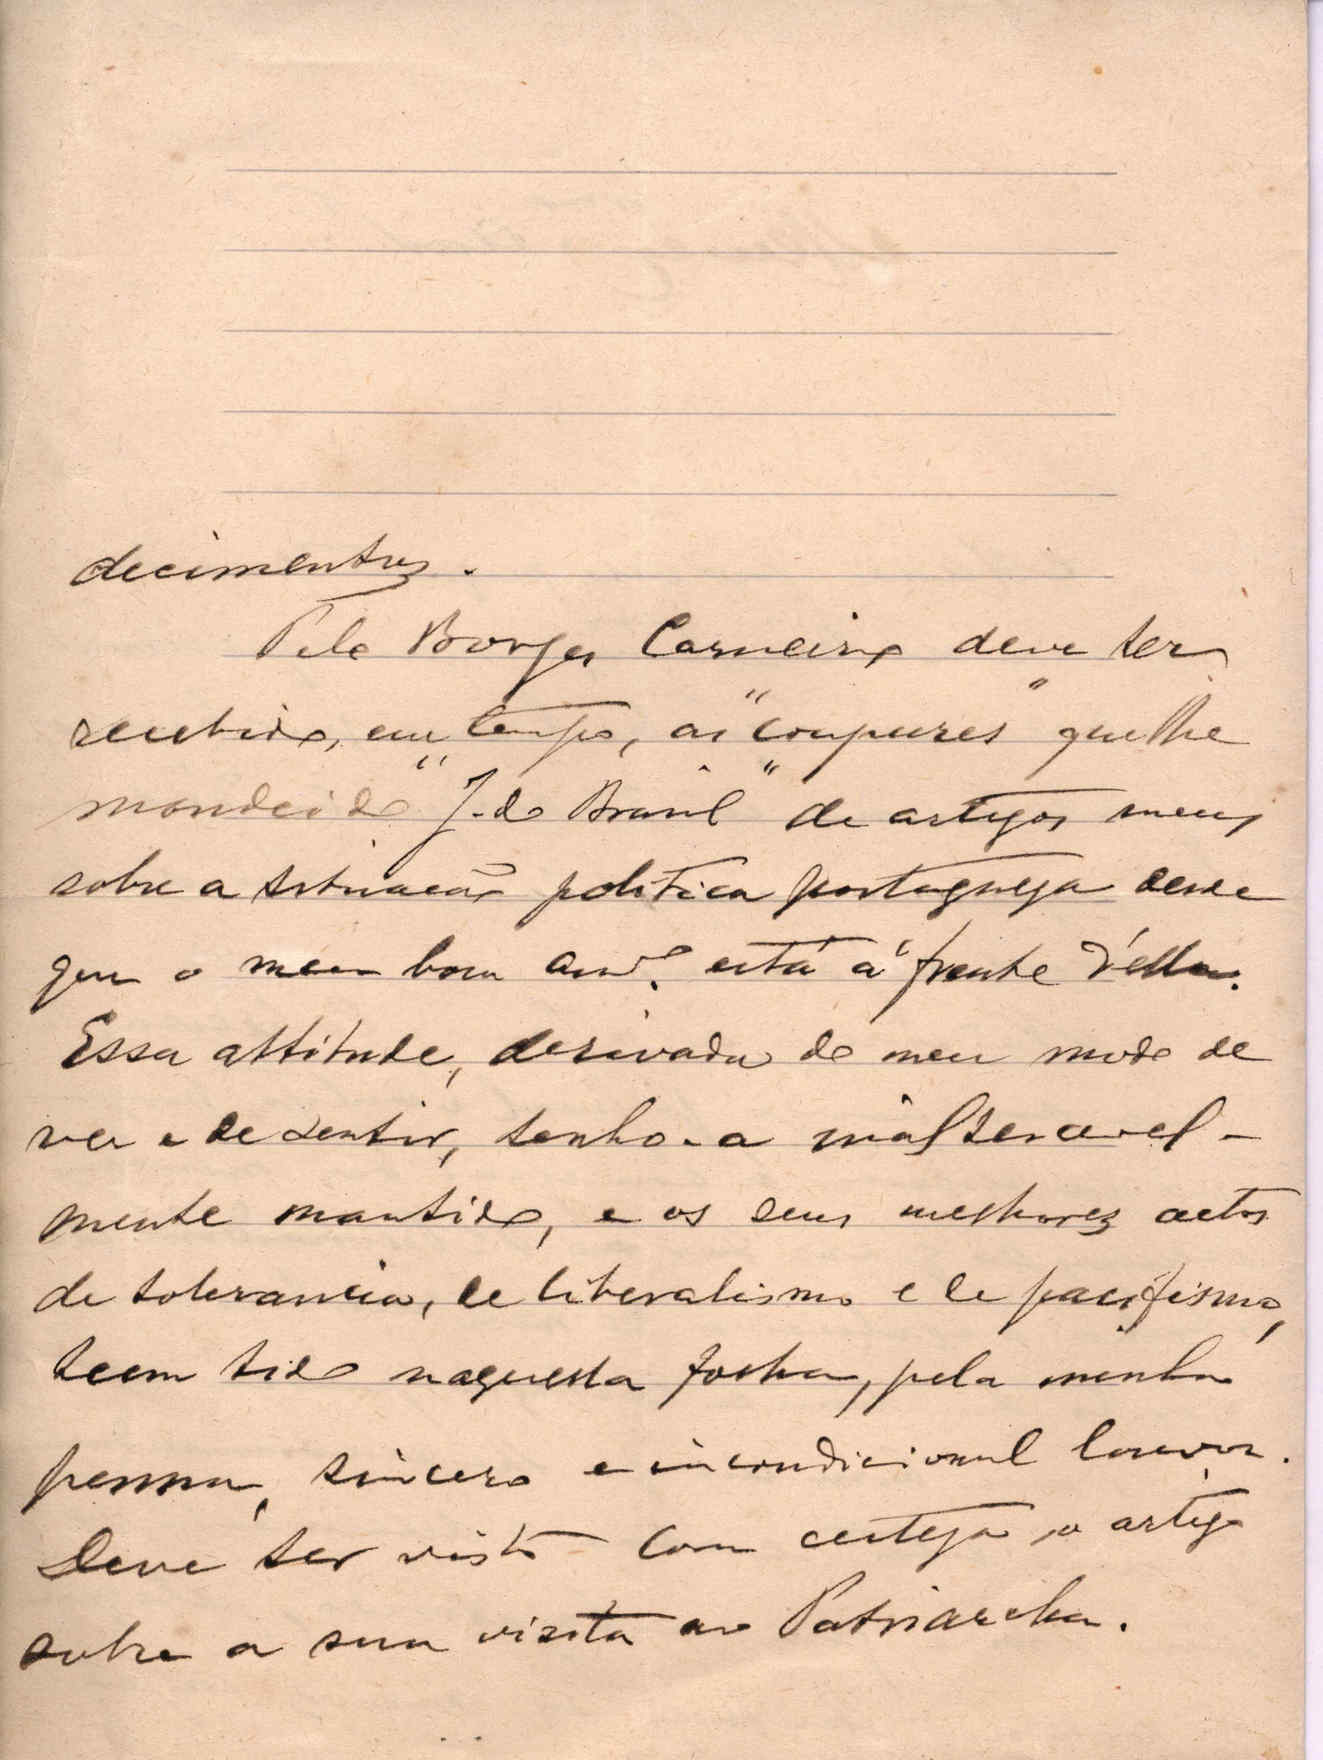 decimentos.
Pelo Borges Carneiro deve ter
recebido, em tempo, as "coupures" que lhe
mandei do "J. do Brasil" de artigos meus
sobre a situação politica portugueza desde
que o meu bom amº. está á frente d'ella.
Essa attitude, derivada do meu modo de
ver e de sentir, tenho-a inalteravel-
mente mantido, e os seus melhores actos
de tolerancia, de liberalismo e de pacifismo,
teem tido naquella folha, pela minha
penna, sincero e incondicional louvor.
Deve ter visto com certeza o artigo
sobre a sua visita ao Patriarcha.